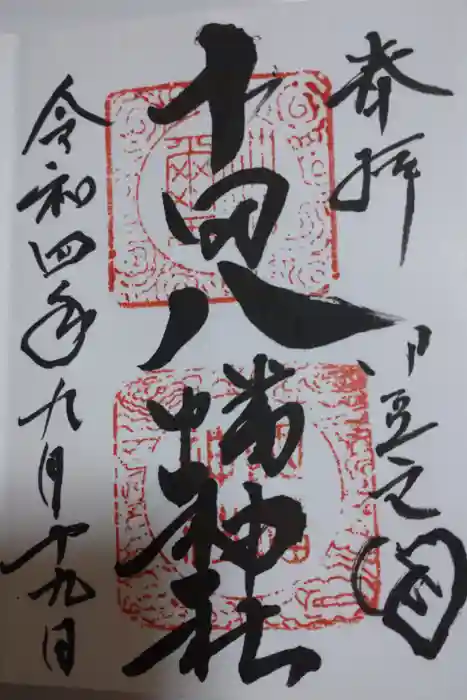 奉拝
伊豆之国
八幡神社
令和四年九月十九日